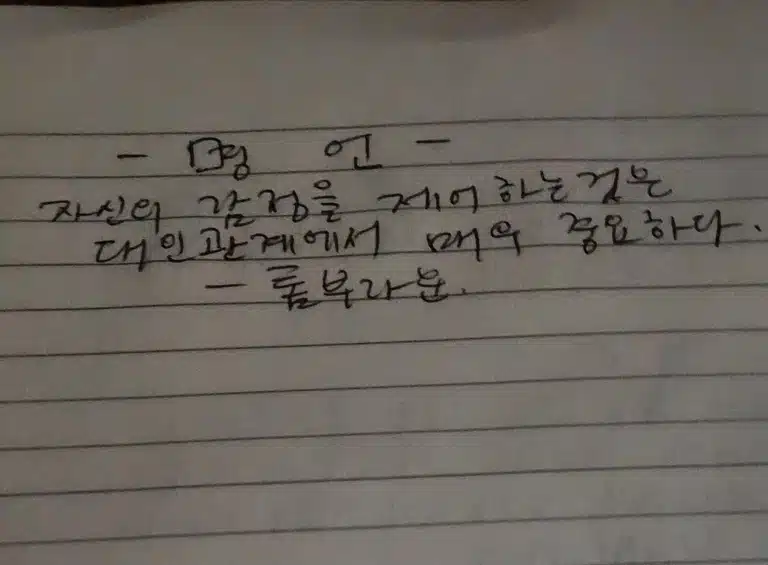 - 명 언 -
자신의 감정을 제어 하는것은
대인관계에서 매우 중요하다.
- 롬브라운.